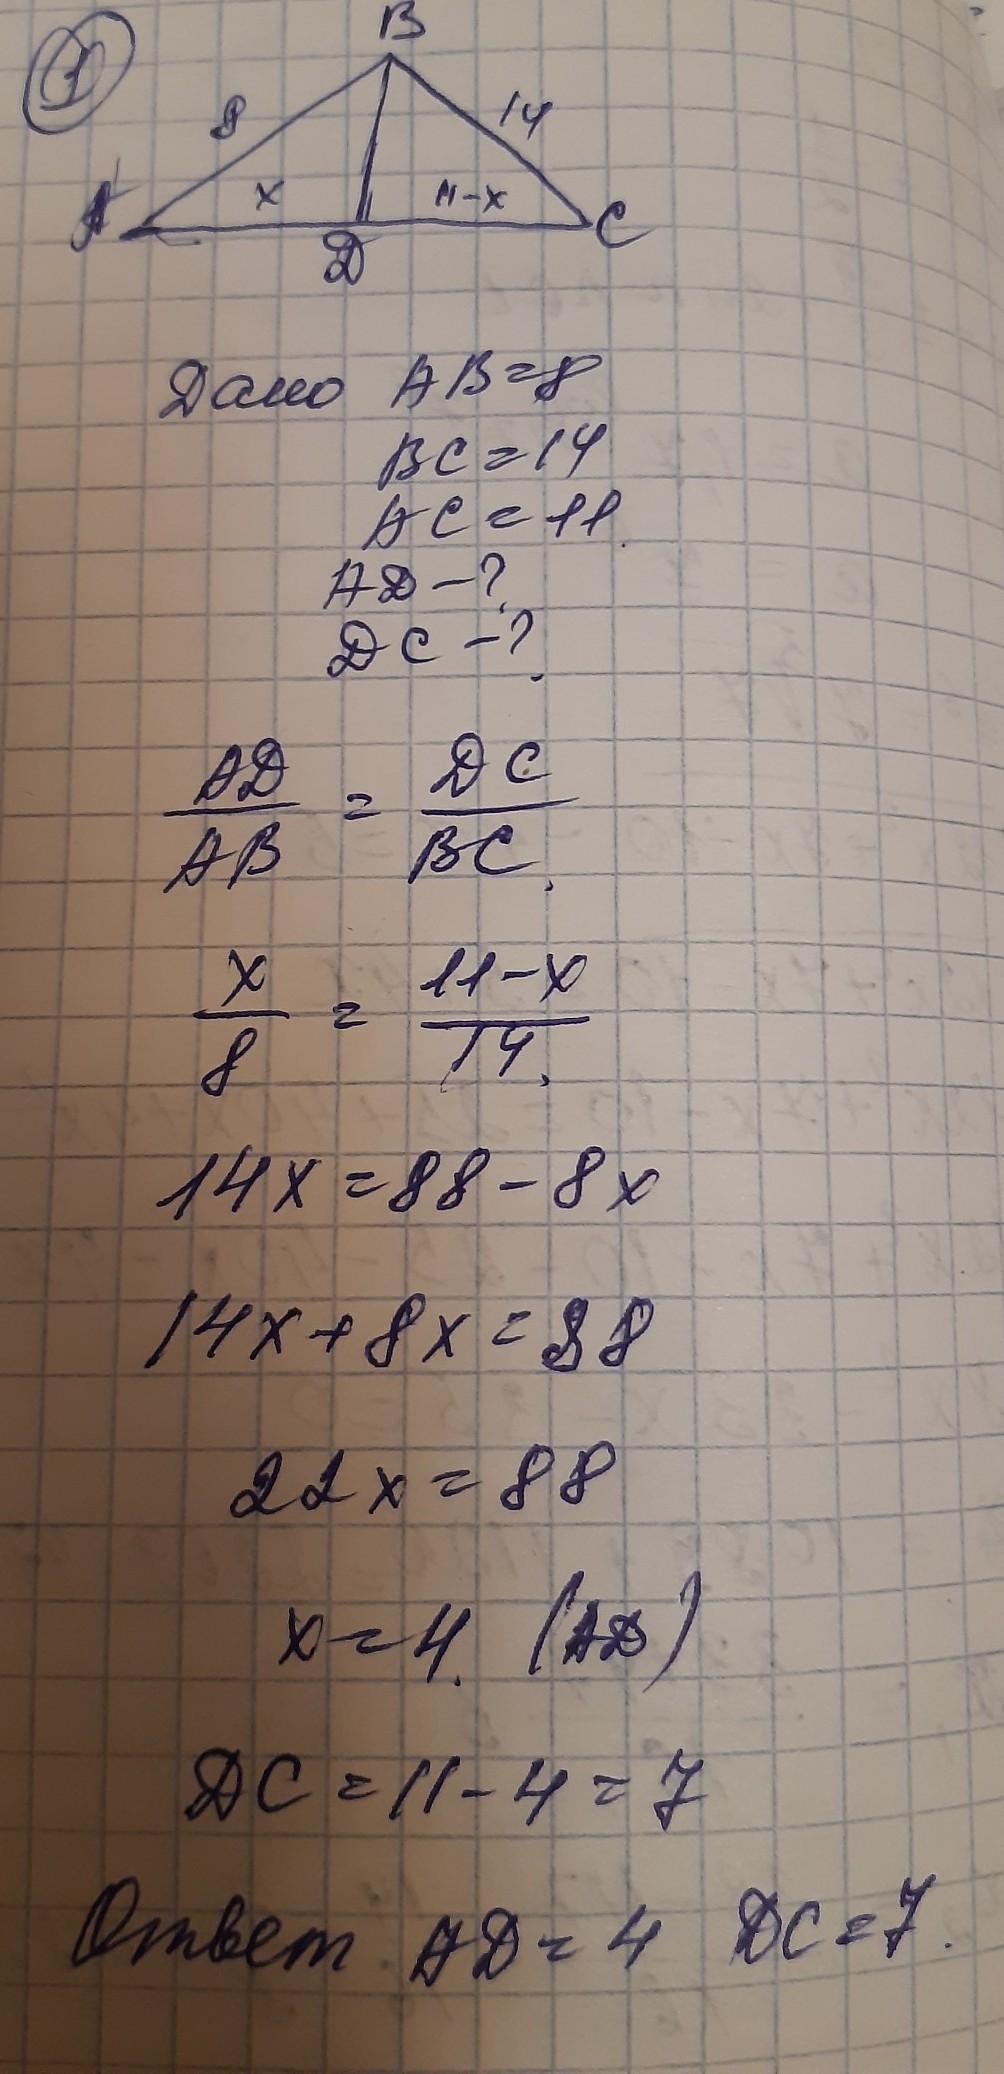 1
B
8
14
A
x
11-x
C
D
Дано AB=8
BC=14
AC=11.
AD-?
DC-?
AD/AB = DC/BC.
x/8 = 11-x/14.
14x=88-8x
14x+8x=88
22x=88
x=4. (AD)
DC=11-4=7
Ответ AD=4 DC=7.